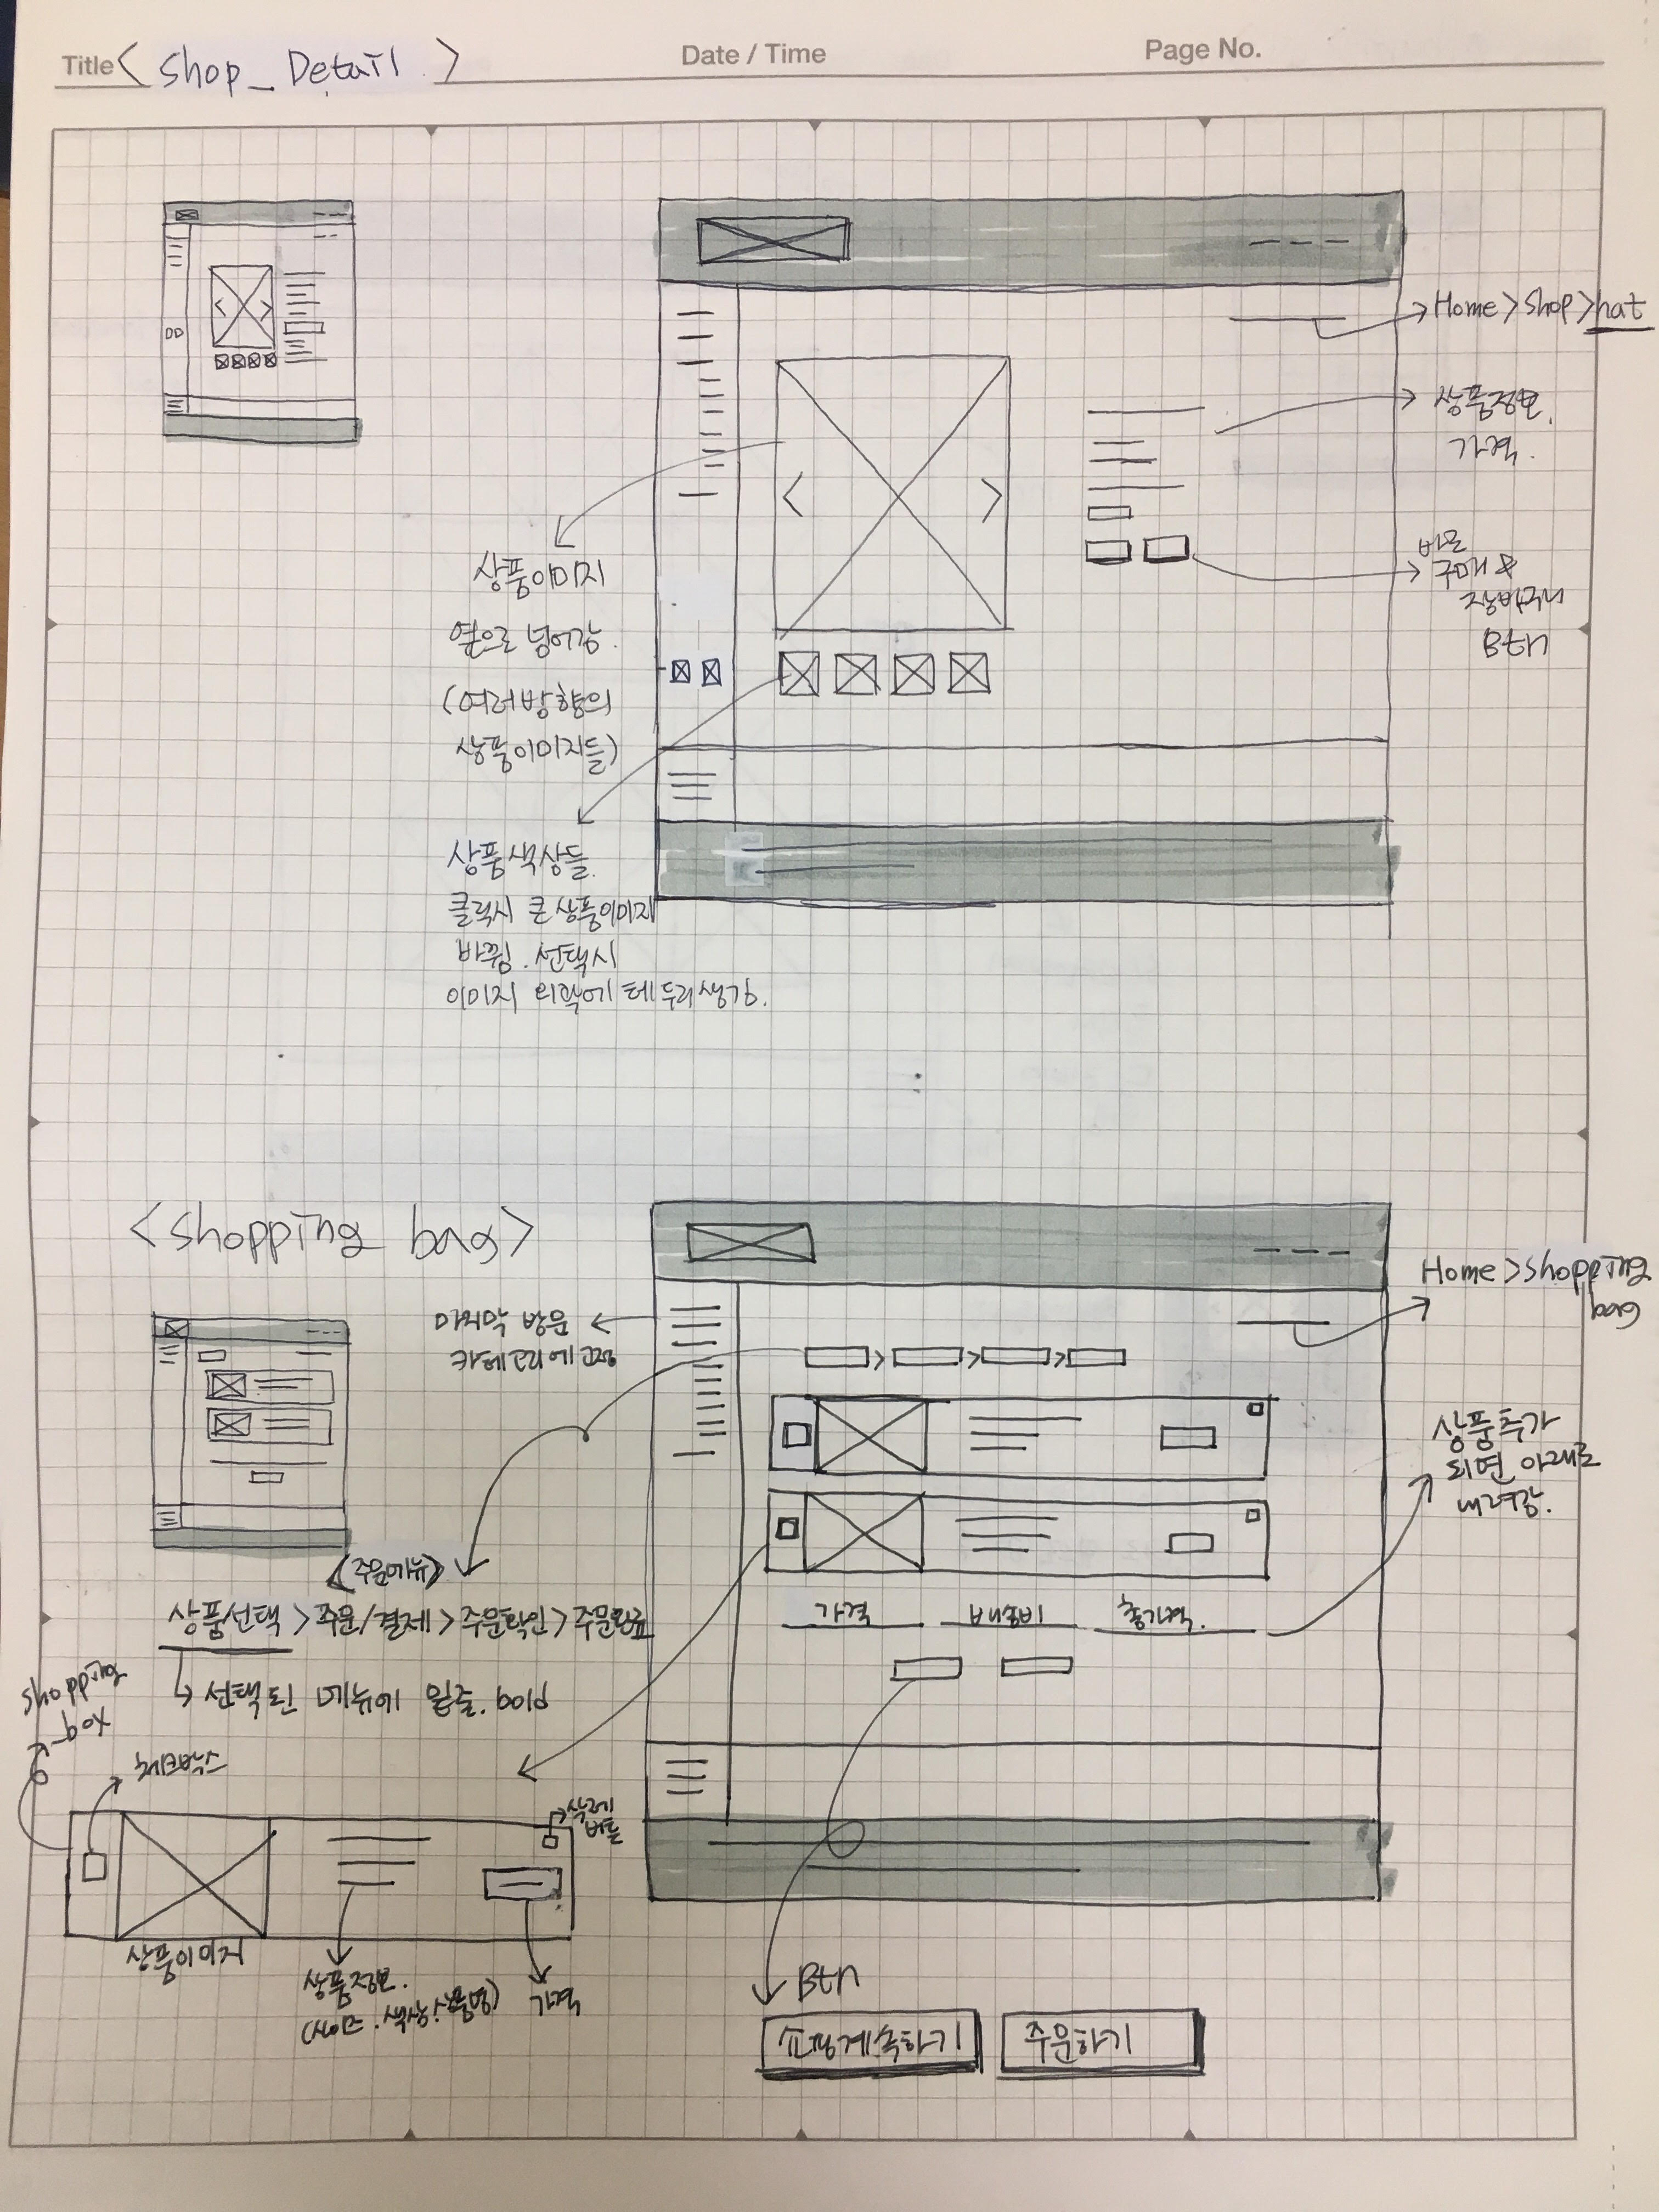 Title < Shop_Detail >
Date / Time
Page No.
Home > shop > hat
상품정보.
가격.
바로
구매 &
장바구니
Btn
상품이미지
옆으로 넘어감.
(여러방향의
상품이미지들)
상품색상들.
클릭시 큰 상품이미지
바뀜. 선택시
이미지 외곽에 테두리생김.
<shopping bag>
Home > shopping
bag
마지막 방문
카테고리에 고정
상품추가
되면 아래로
내려감.
<주문메뉴>
상품선택 > 주문/결제 > 주문확인 > 주문완료
선택된 메뉴에 밑줄. bold
가격
배송비
총가격.
shopping
box
체크박스
삭제
버튼
상품이미지
상품정보.
(사이즈. 색상. 상품명)
가격
Btn
쇼핑계속하기
주문하기